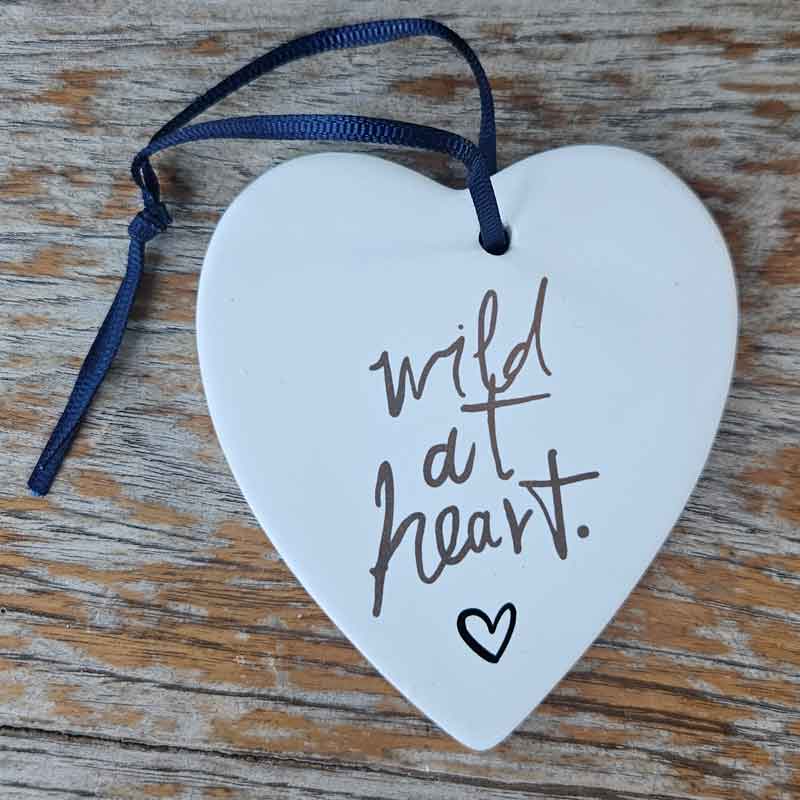 wild
at
heart.